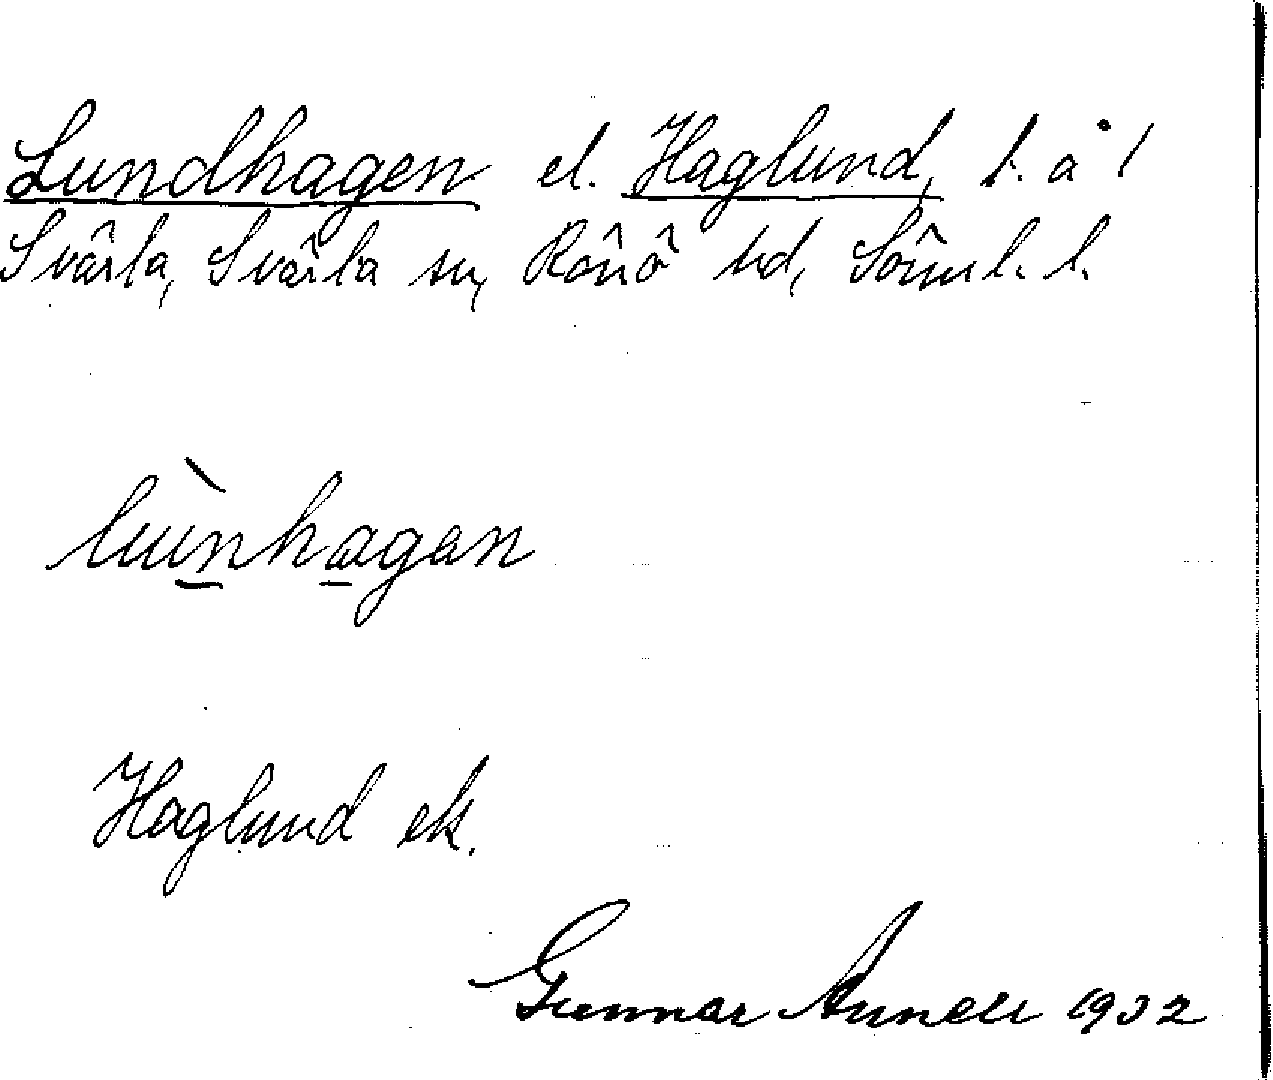 Lundhagen el. Haglund, t. å 1
Svärta, Svärta sn, Rönö hd, Söml. l.
lùnhagan
Haglund ek.
Gunnar Annell 1932